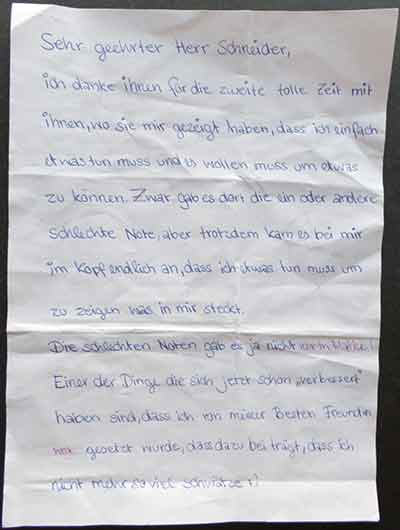 Sehr geehrter Herr Schneider,
ich danke ihnen für die zweite tolle Zeit mit
ihnen, wo sie mir gezeigt haben, dass ich einfach
etwas tun muss und es wollen muss um etwas
zu können. Zwar gab es dort die ein oder andere
schlechte Note, aber trotzdem kam es bei mir
im Kopf endlich an, dass ich etwas tun muss um
zu zeigen was in mir steckt.
Die schlechten Noten gab es ja nicht nur in Mathe!
Einer der Dinge die sich jetzt schon „verbessert"
haben sind, dass ich von meiner Besten Freundin
gesetzt wurde, dass dazu bei trägt, dass ich
nicht mehr so viel schwätze!